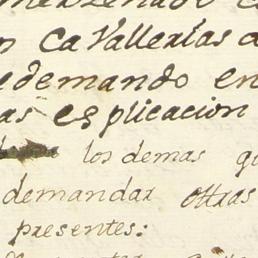 n CaVallerias a
edemando en
as esplicacion
los demas q
demandar ottras
presentes: